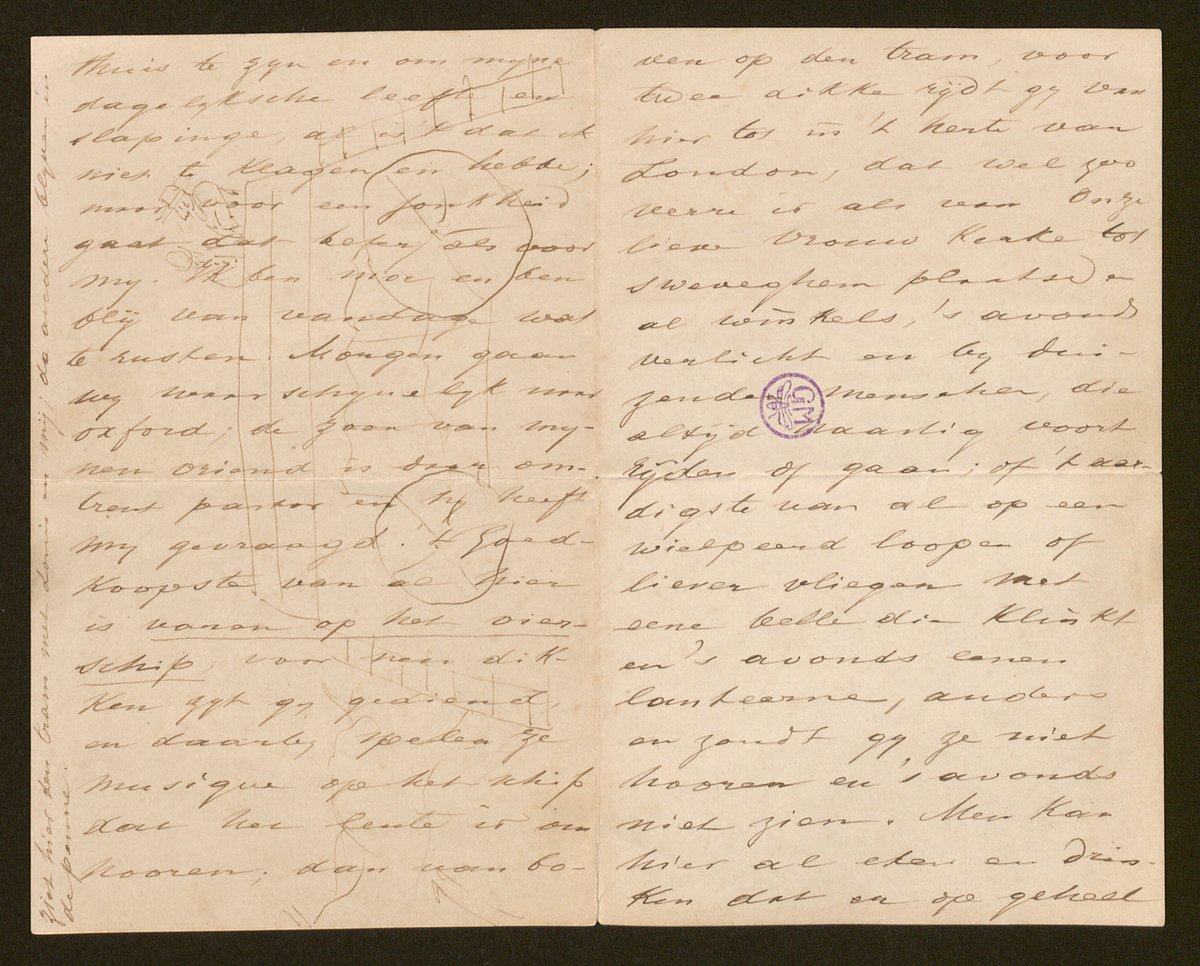 thuis te zyn en om myne
dagelyksche leefte en
slapinge, al is 't dat ik
niet te klagen en hebbe;
maar voor een jonkheid
gaat dat beter als voor
my. Ik ben moe en ben
blij van vandage wat
te rusten. Morgen gaan
wy waarschynelyk naar
oxford; de zoon van my-
nen vriend is daar om-
trent pastor en hy heeft
my gevraagd. 't Goed-
koopste van al hier
is varen op het vier-
schip; voor nen dik-
ken zyt gy gediend,
en daarby spelen ze
musique op het schip
dat het leute is om
hooren; dan van bo-
ziet hier den tram met louis en mij; de andere blyven in
de penne.
ven op den tram, voor
twee dikke rijdt gy van
hier tot in 't herte van
London, dat wel zoo
verre is als van Onze
lieve Vrouw Kerke tot
sweveghem plaatse) en
al winkels, 's avonds
verlicht en by dui-
zenden menschen die
altijd haastig voort
rijden of gaan; of 't aar-
digste van al op een
wielpeerd loopen of
liever vliegen met
eene belle die klinkt
en 's avonds eenen
lanteerne, anders
en zoudt gy ze niet
hooren en 's avonds
niet zien. Men kan
hier al eten en drin-
ken dat en op geheel
GM